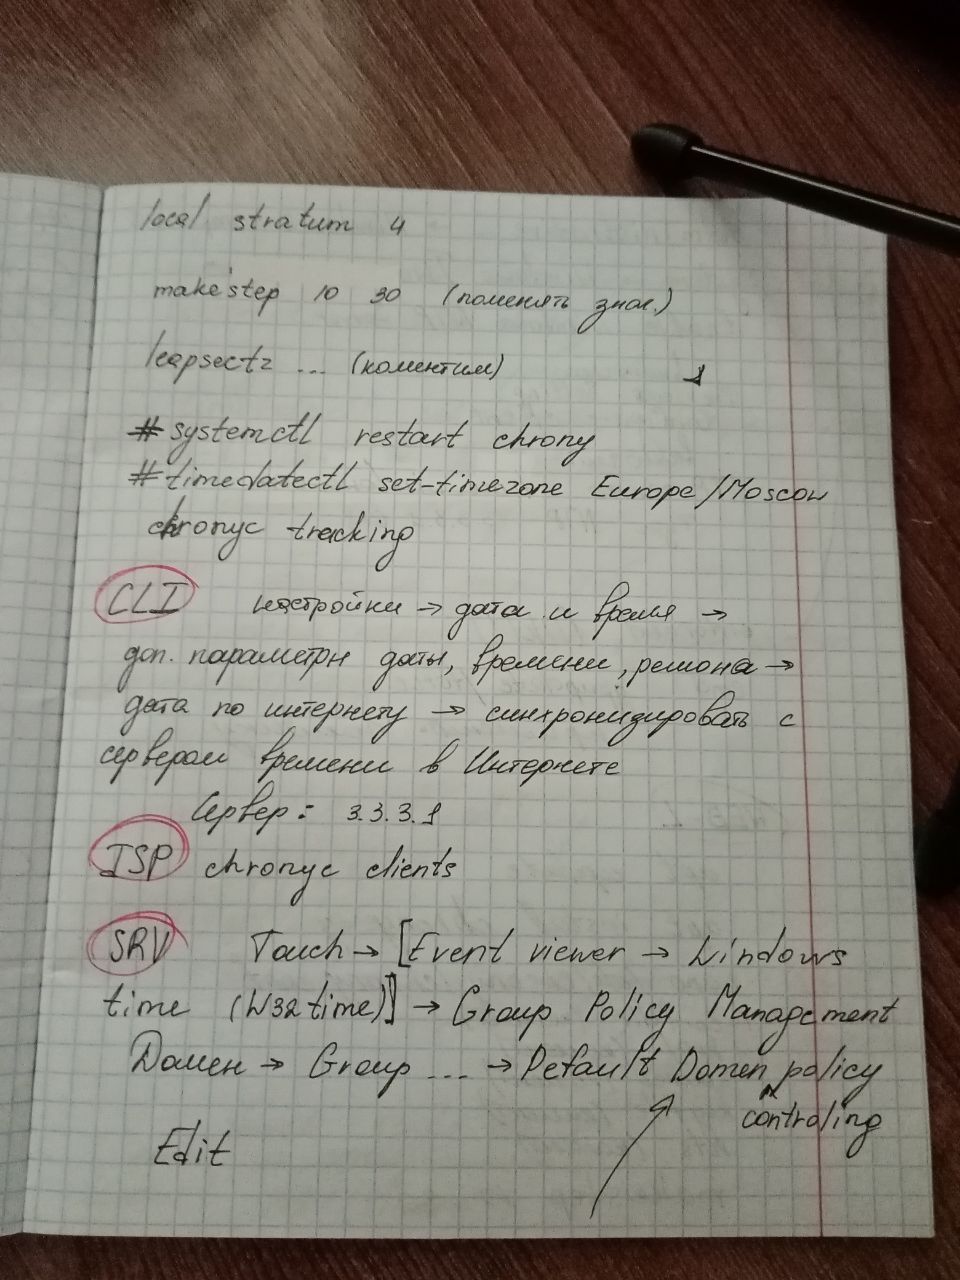 local stratum 4
makestep 10 30 (поменять знач.)
leapsectz ... (коментим)
# systemctl restart chrony
# timedatectl set-timezone Europe/Moscow
chronyc tracking
CLI настройки → дата и время →
доп. параметры даты, времени, региона →
дата по интернету → синхронизировать с
сервером времени в Интернете
Сервер: 3.3.3.1
ISP chronyc clients
SRV Touch → [Event viewer → Windows
time (W32time)] → Group Policy Management
Домен → Group ... → Default Domen policy
controling
Edit